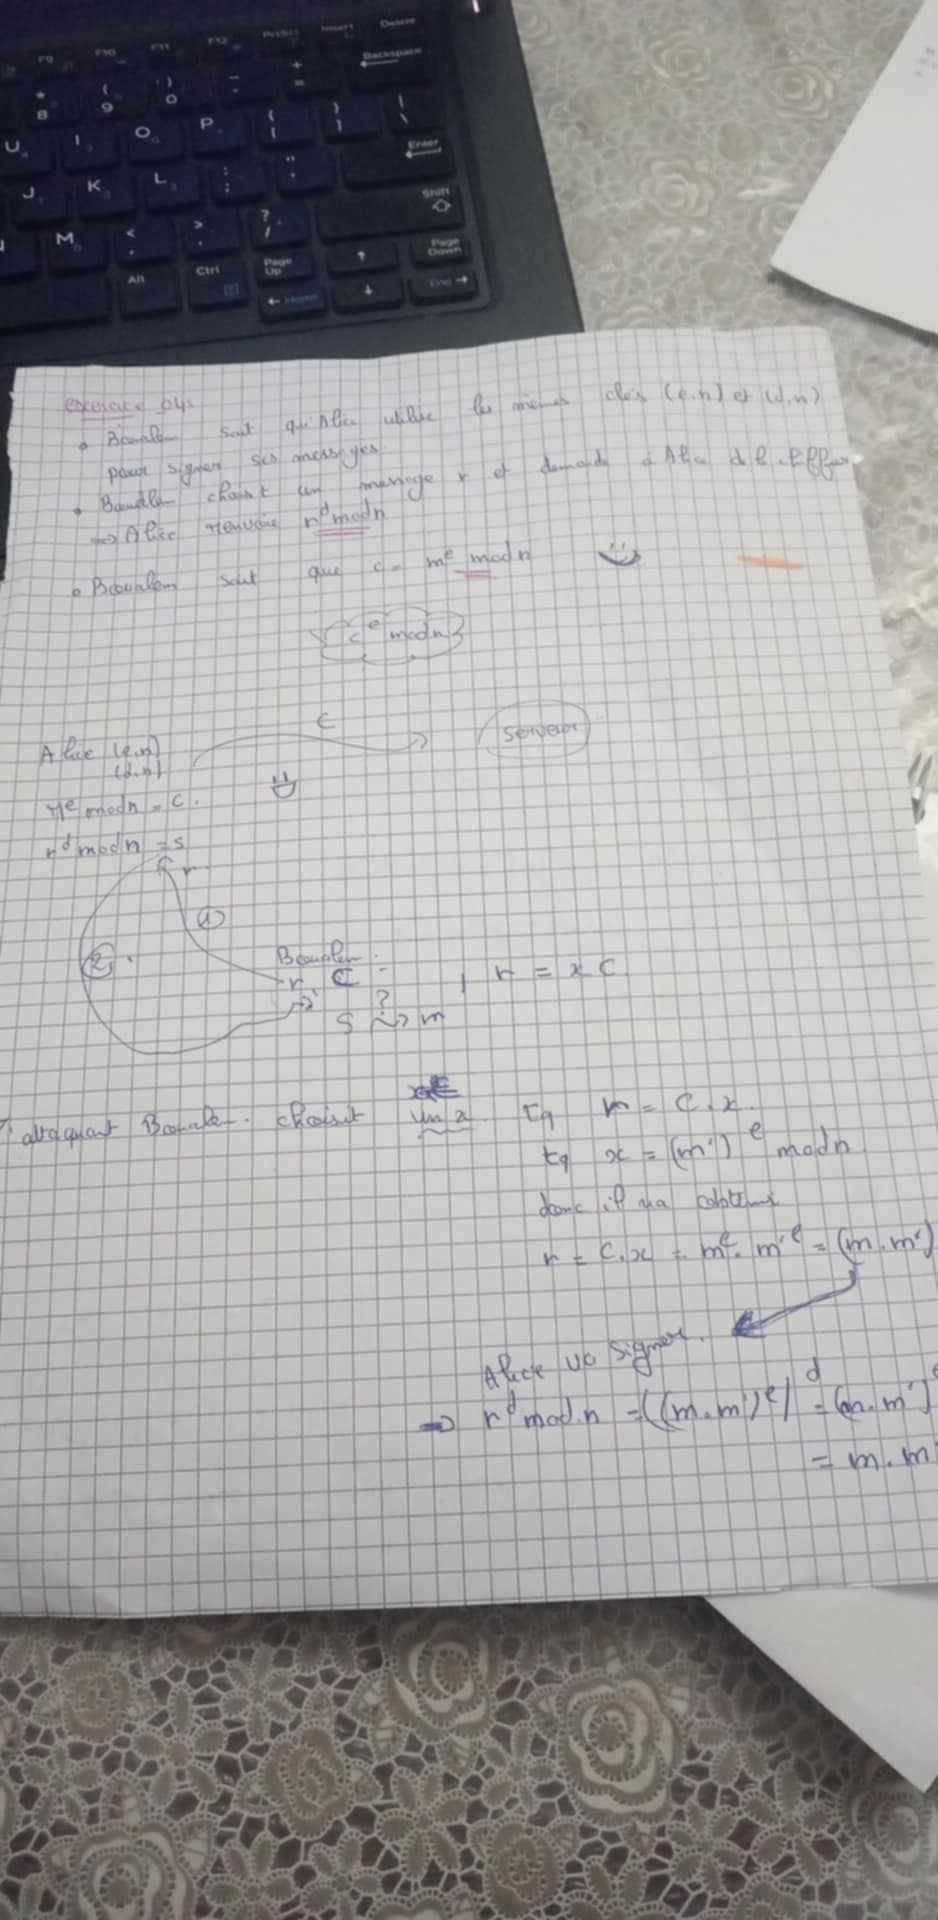 F9 F10 F11 F12 PrtScr Insert Delete
* 8 ( 9 ) 0 _ - + = Backspace
U I O P { [ } ] | \
J K L : ; " ' Enter
M < , > . ? / Shift
Alt Ctrl Page Up Page Down
Home End
exercice 04:
• Boualem sait qu'Alice utilise les mêmes clés (e,n) et (d,n)
pour signer ses messages.
• Boualem choisit un message r et demande à Alice de
⇒ Alice renvoie r^d mod n
• Boualem sait que c = m^e mod n
c^e mod n
c
serveur
Alice (e,n)
(d,n)
M^e mod n = c.
r^d mod n = s
r
(1)
(2)
Boualem
r, C , r = x C
?
S ~> m
attaquant Boualem choisit un x tq r = C.x.
tq x = (m')^e mod n
donc il va obtenir
r = C.x = m^e. m'^e = (m.m')
Alice va signer.
⇒ r^d mod n = ((m.m')^e)^d = (m.m')^e
= m.m'